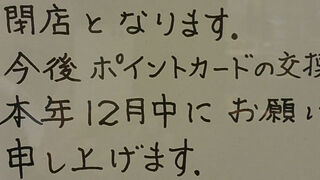 閉店となります.
今後ポイントカードの交換
本年12月中にお願い
申し上げます.